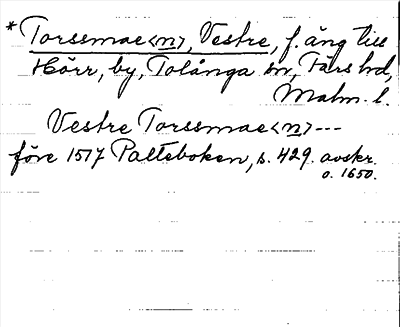 *Torssmae<n>, Vestre, f. äng till
Hörr, by, Tolånga sn, Färs hd,
Malm. l.
Vestre Torssmae<n> ---
före 1517 Palteboken, s. 429. avskr.
o. 1650.